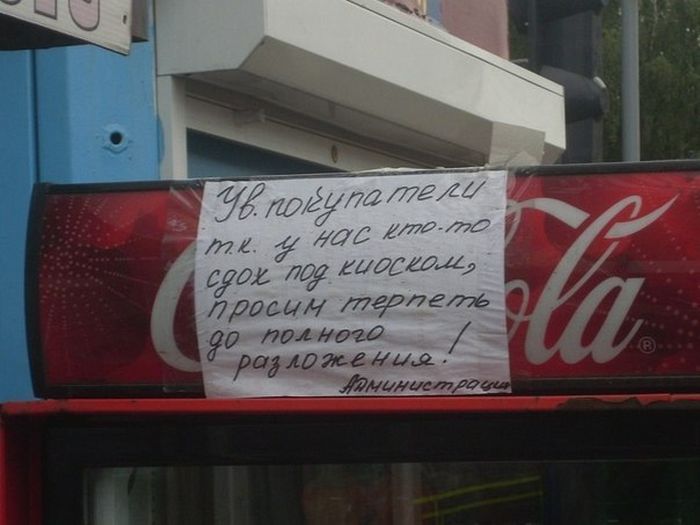 Ув. покупатели
т.к. у нас кто-то
сдох под киоском,
просим терпеть
до полного
разложения!
Администрация
Cola®